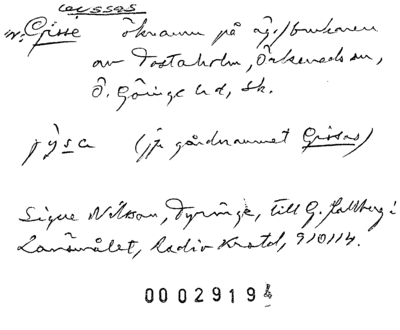 Gissas
n. Gisse öknamn på äg./brukaren
av Tostaholm, Örkeneds sn,
Ö. Göinge hd, Sk.
jỳsa (jfr gårdnamnet Gissas)
Signe Nilsson, Tyringe, till G. Hallberg i
Lantmålet, Radio Kristd, 910114.
0002919